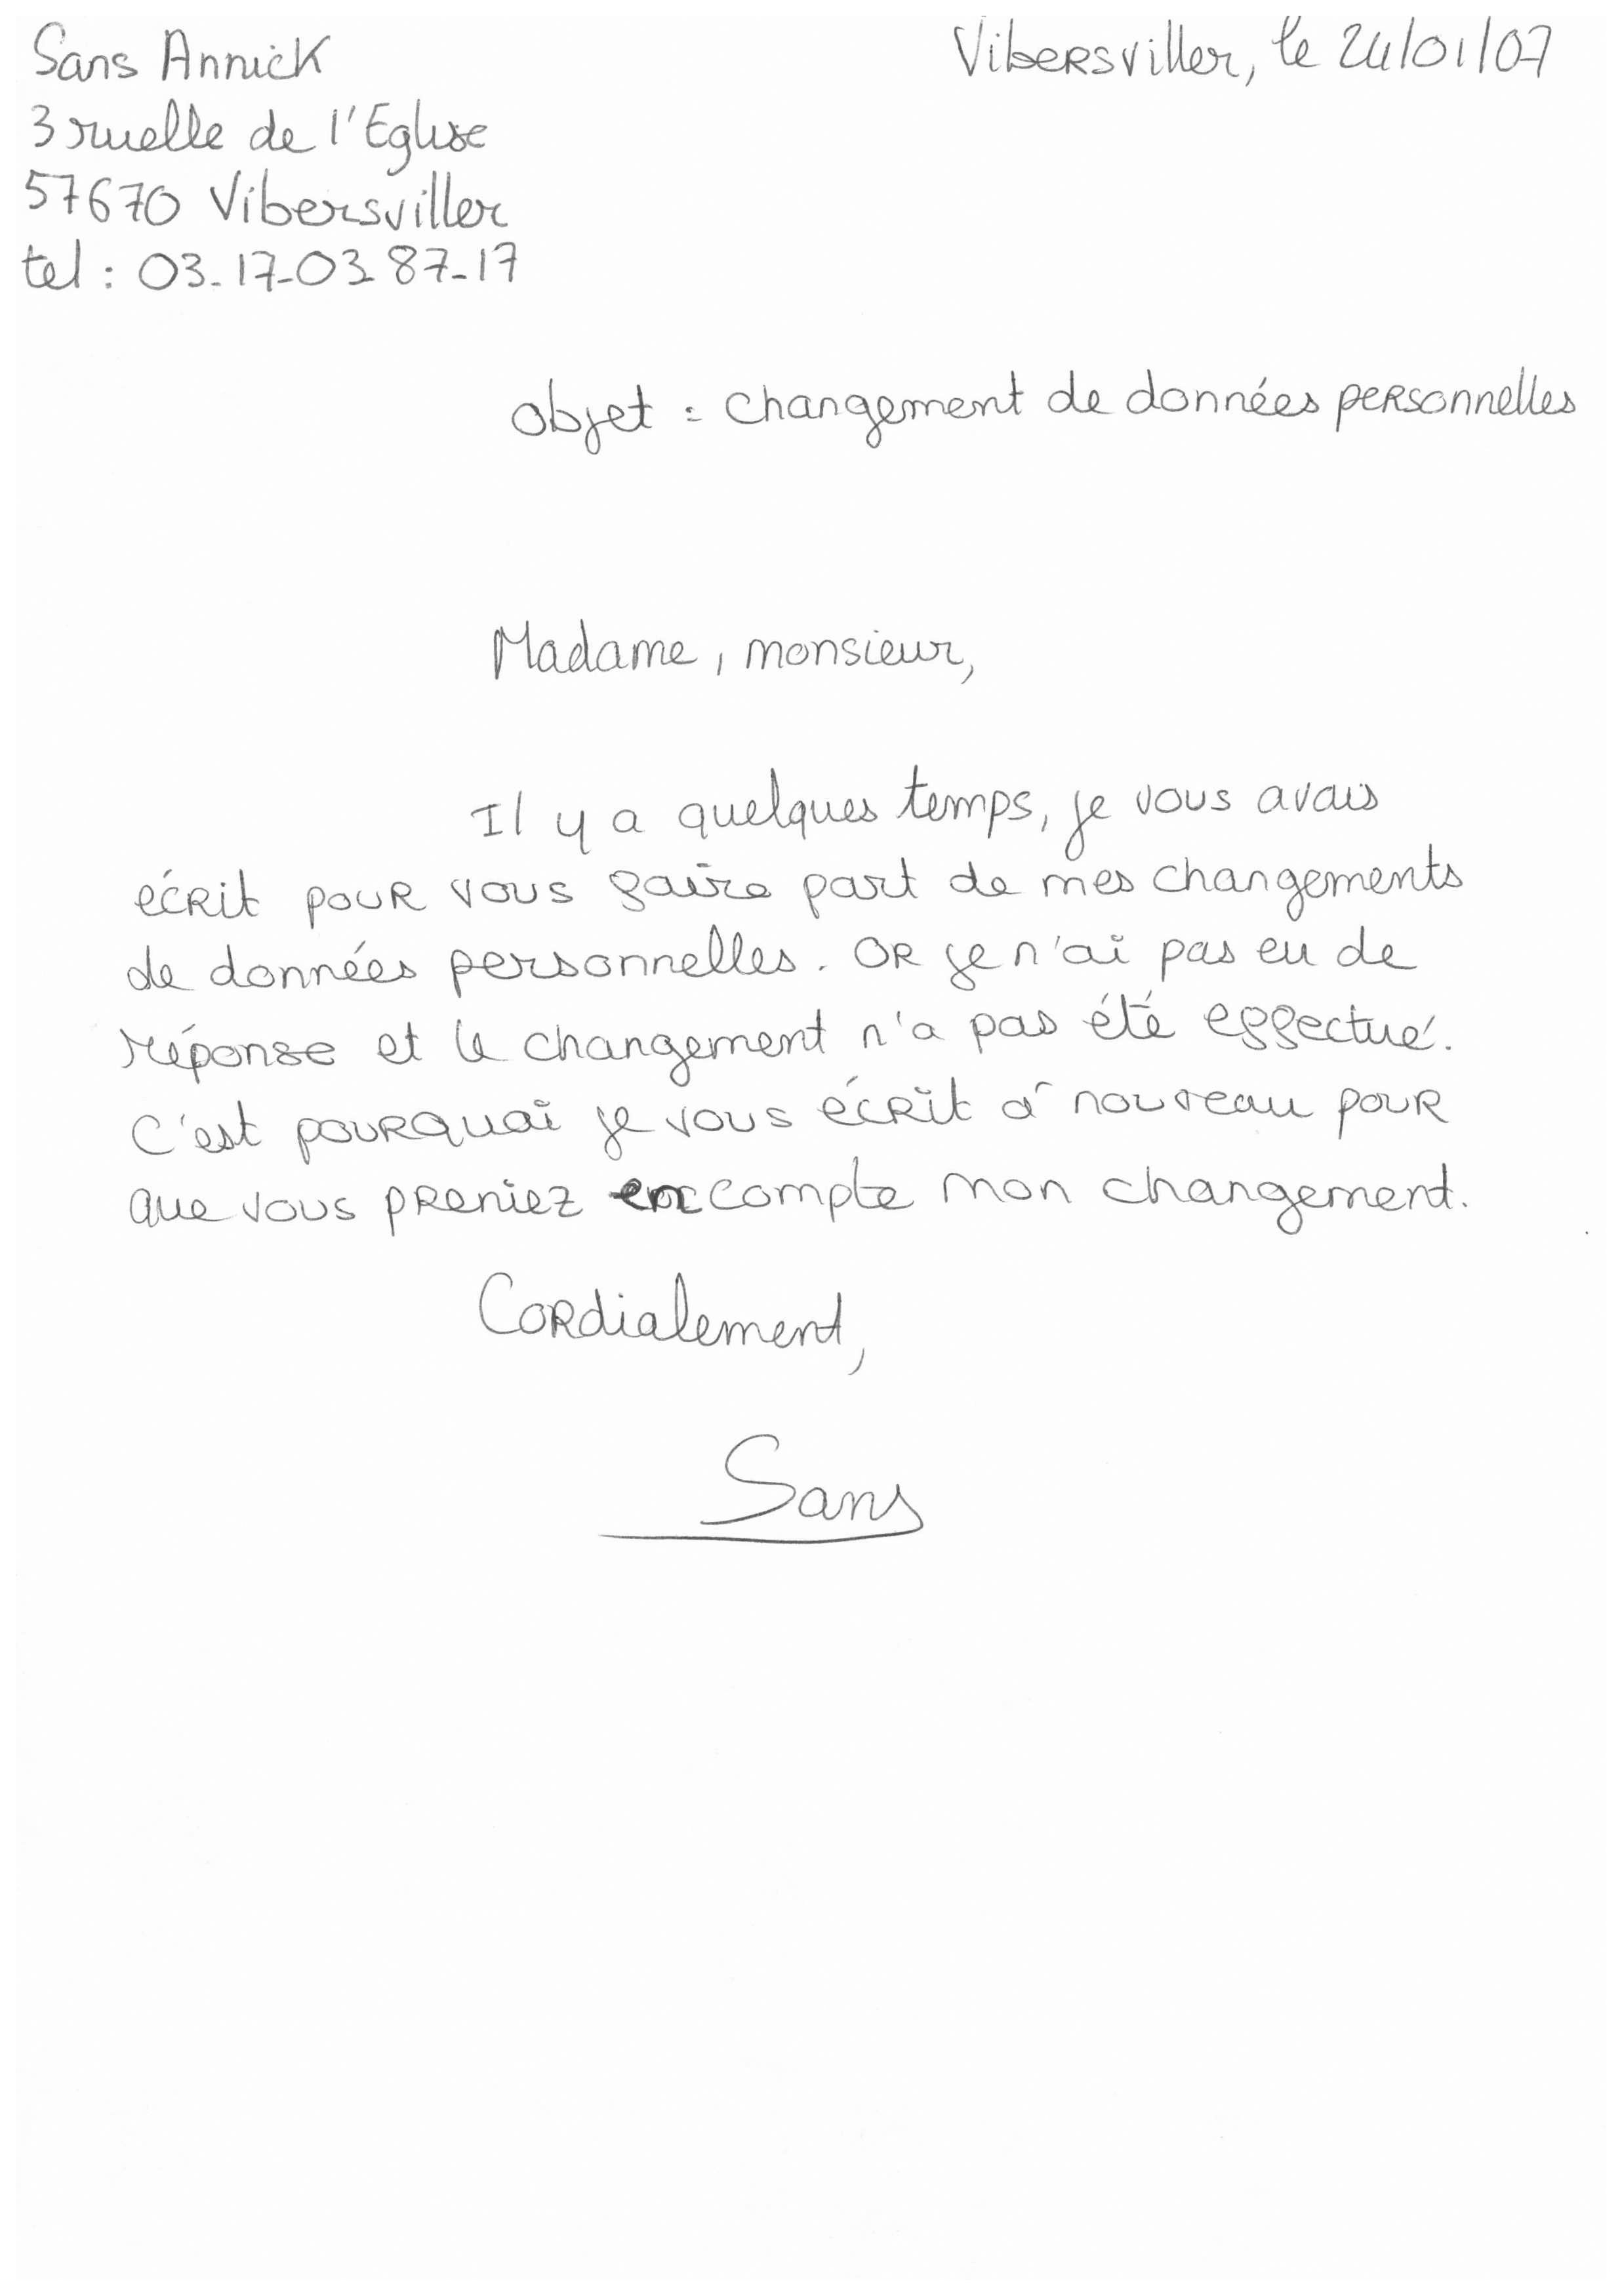 Sans Annick
3 ruelle de l'Eglise
57670 Vibersviller
tel : 03-17-03 87-17
Vibersviller, le 24/01/07
objet : changement de données personnelles
Madame, monsieur,
Il y a quelques temps, je vous avais
écrit pour vous faire part de mes changements
de données personnelles. Or je n'ai pas eu de
réponse et le changement n'a pas été effectué.
C'est pourquoi je vous écrit à nouveau pour
que vous preniez en compte mon changement.
Cordialement,
Sans